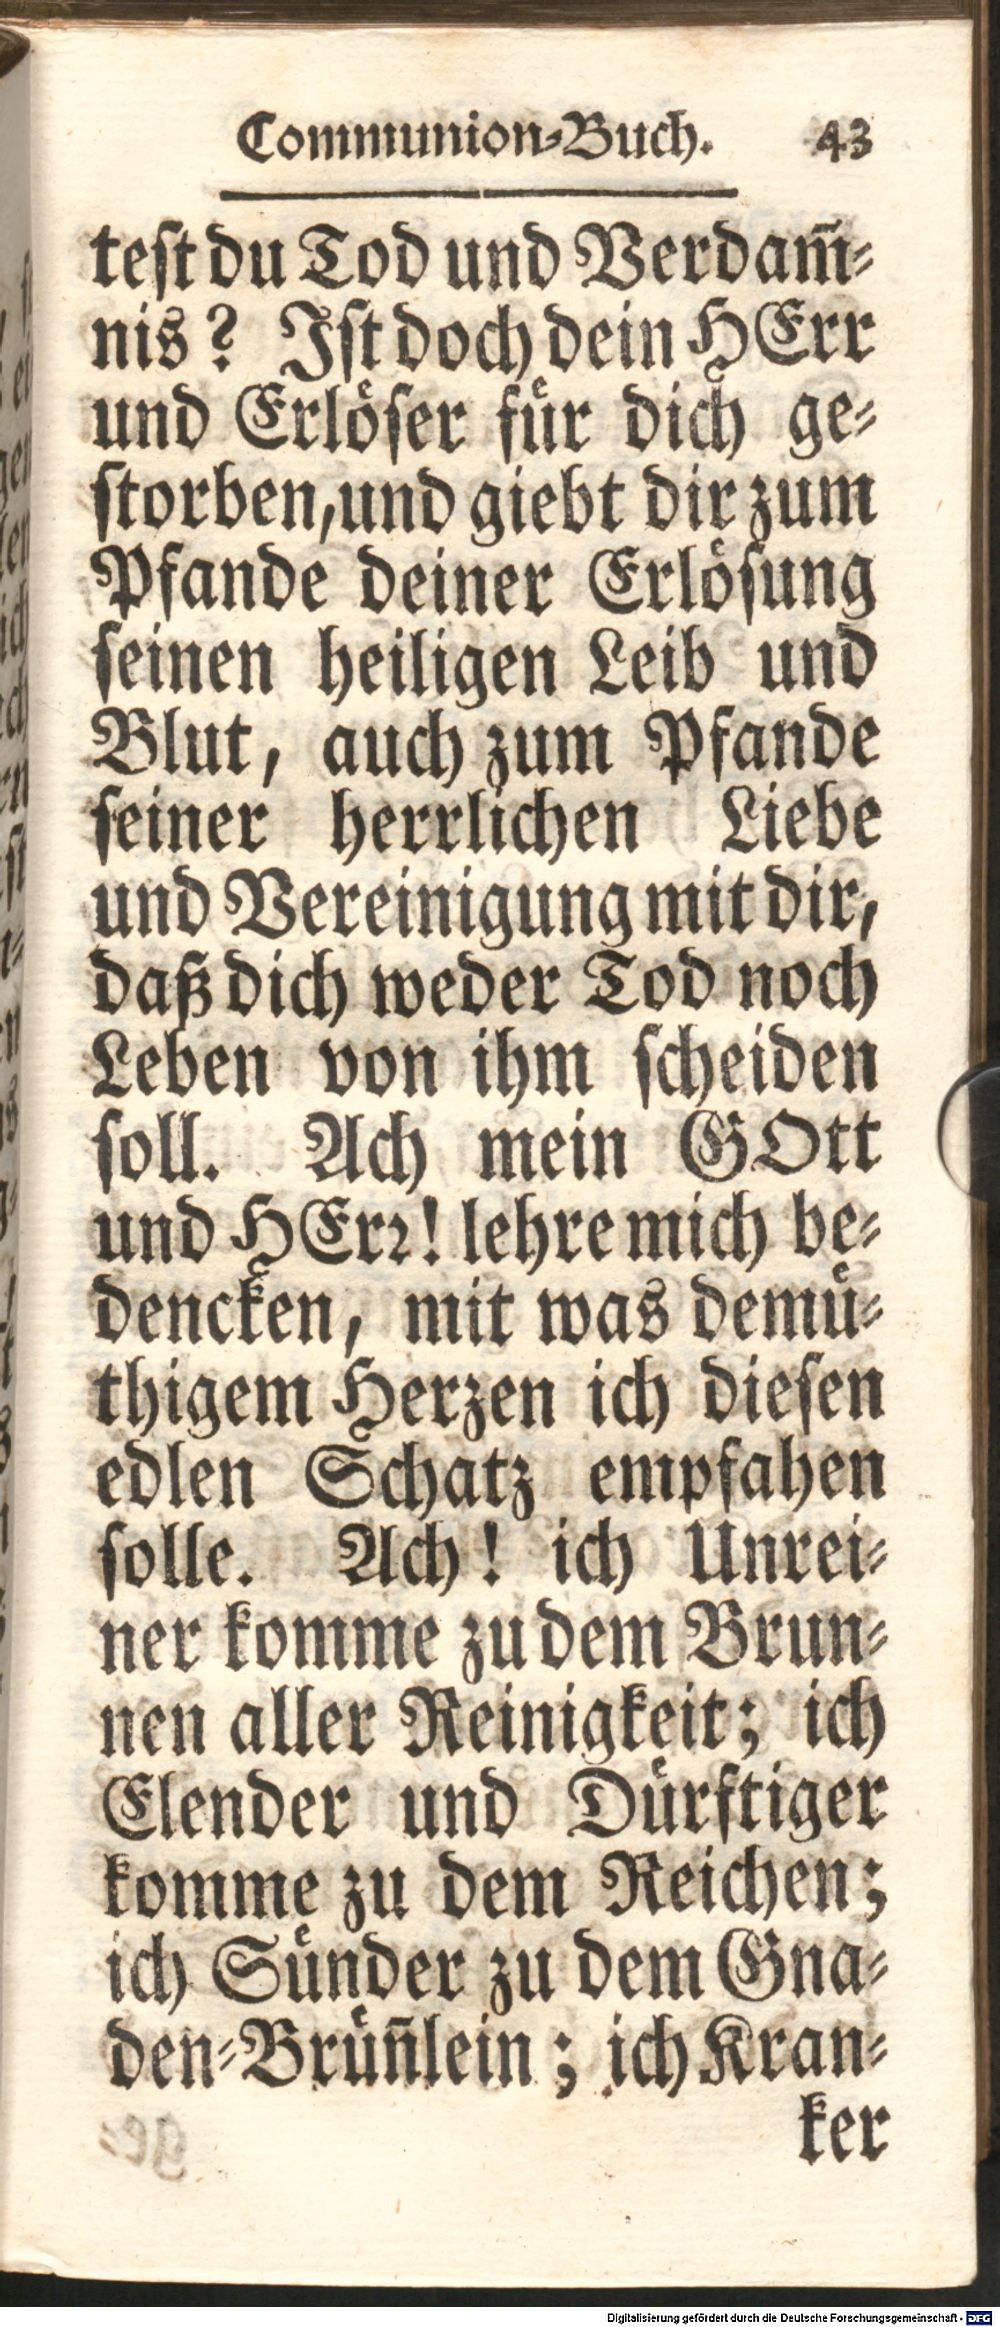 Communion-Buch. 43
test du Tod und Verdam̄-
nis? Ist doch dein HErr
und Erlöser für dich ge-
storben, und giebt dir zum
Pfande deiner Erlösung
seinen heiligen Leib und
Blut, auch zum Pfande
seiner herrlichen Liebe
und Vereinigung mit dir,
daß dich weder Tod noch
Leben von ihm scheiden
soll. Ach mein GOtt
und HErꝛ! lehre mich be-
dencken, mit was demü-
thigem Herzen ich diesen
edlen Schatz empfahen
solle. Ach! ich Unrei-
ner komme zu dem Brun-
nen aller Reinigkeit; ich
Elender und Dürftiger
komme zu dem Reichen;
ich Sünder zu dem Gna-
den-Brün̄lein; ich Kran-
ker
Digitalisierung gefördert durch die Deutsche Forschungsgemeinschaft - DFG